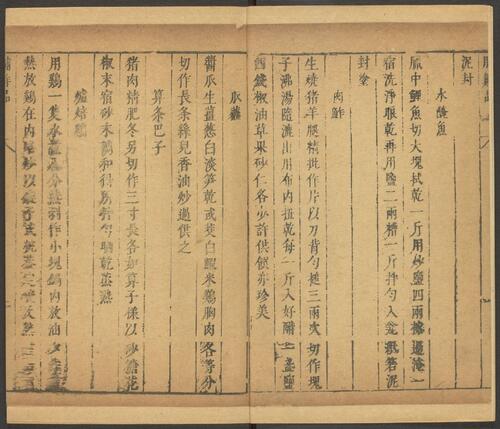 泥封
水醃魚
臘中鯉魚切大塊拭乾一斤用炒鹽四兩擦過淹一
宿洗淨晾乾再用鹽二兩糟一斤拌勻入瓮紙箬泥
封塗
肉鮓
生燒猪羊腿精批作片以刀背勻搥三兩次切作塊
子沸湯隨漉出用布內扭乾每一斤入好醋一盞鹽
四錢椒油草果砂仁各少許供饌亦珍美
瓜虀
醬瓜生薑葱白淡笋乾或茭白蝦米鷄胸肉各等分
切作長條絲兒香油炒過供之
算条巴子
猪肉精肥各另切作三寸長各如算子樣以砂糖花
椒末宿砂末調和得所拌勻晒乾蒸熟
爐焙鷄
用鷄一隻水煮八分熟剁作小塊鍋內放油少許燒
熱放鷄在內略炒以鏇子或椀蓋定燒